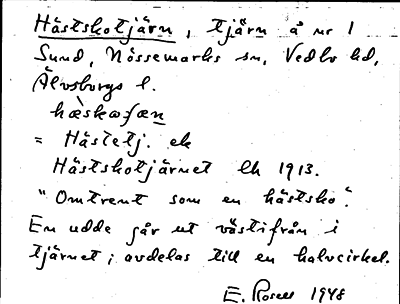 Hästskotjärn, tjärn å nr 1
Sund, Nössemarks sn, Vedbo hd,
Älvsborgs l.
hæ̀skoʃæn
= Hästetj. ek
Hästskotjärnet Lk 1913.
"Omtrent som en hästsko".
En udde går ut västifrån i
tjärnet; avdelas till en halvcirkel.
E. Rosell 1948